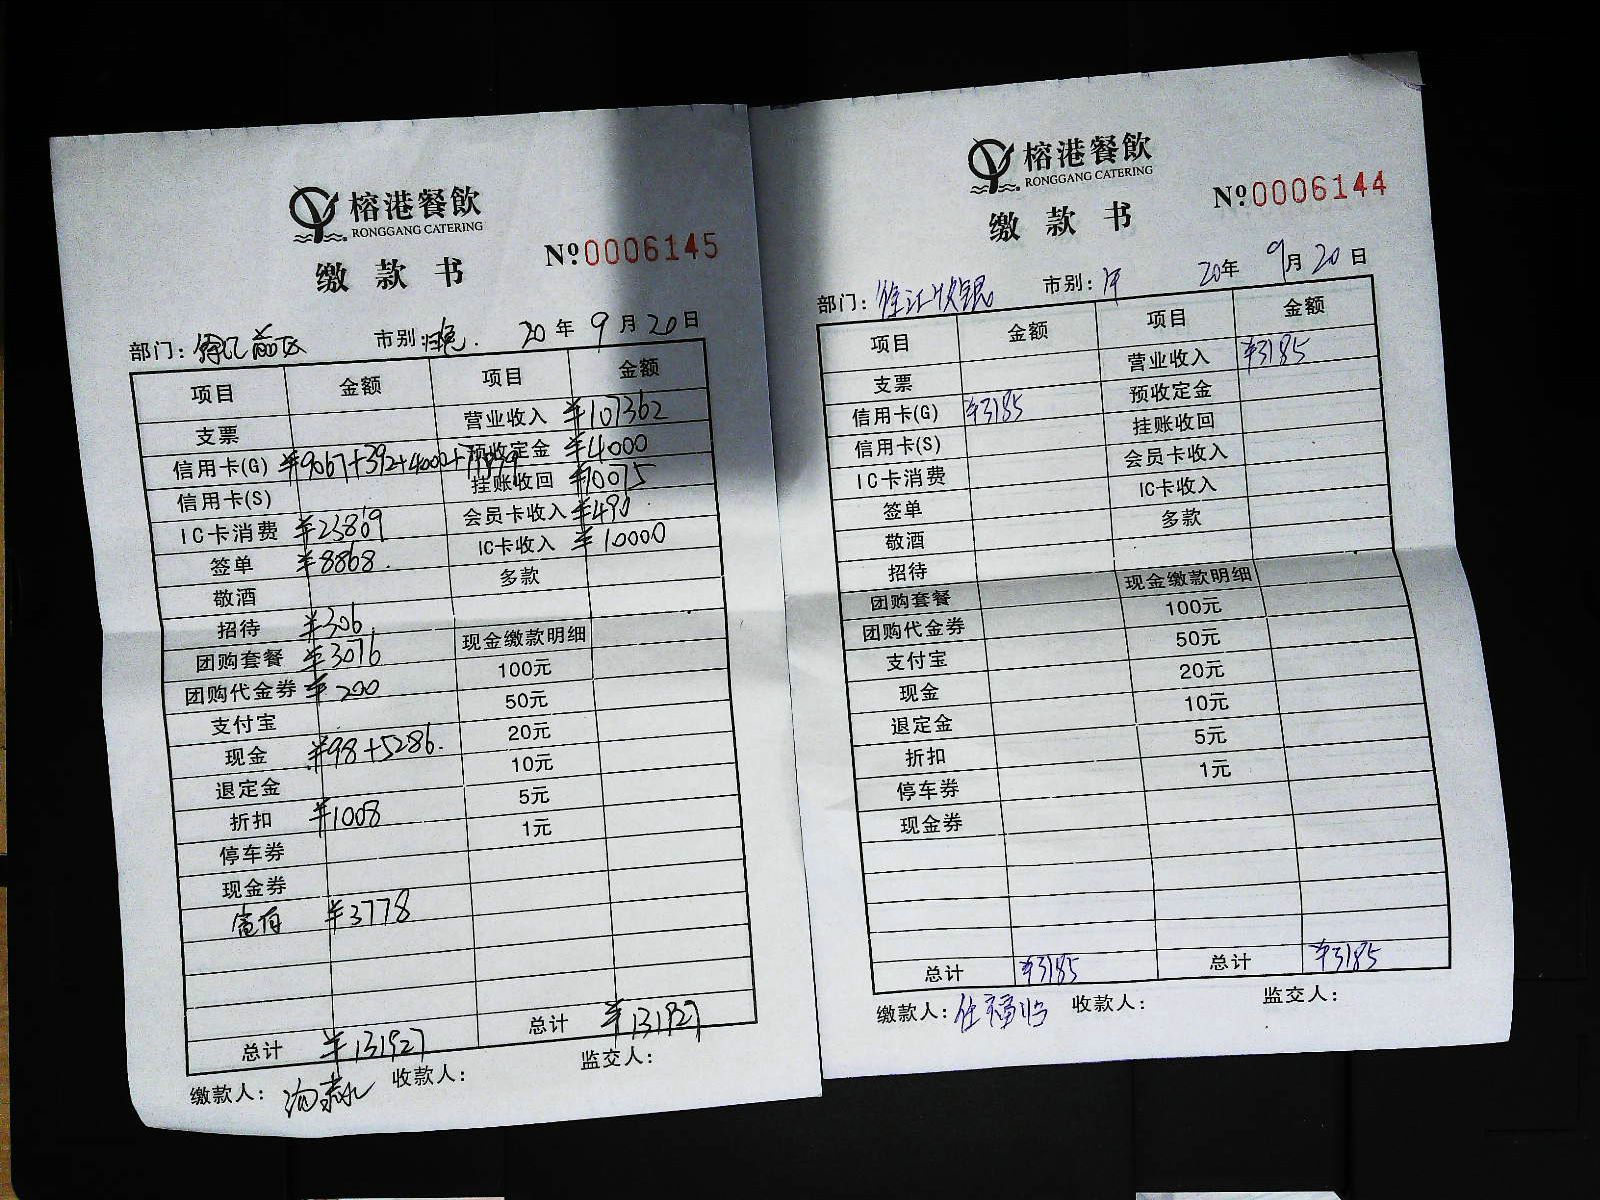 榕港餐飲
RONGGANG CATERING
缴款书
№0006145
部门: 市别: 20年9月20日
项目 金额 项目 金额
营业收入 ¥107362
支票 预收定金 ¥4000
信用卡(G) ¥9067+392+4000+ 挂账收回 ¥10075
信用卡(S) 会员卡收入 ¥490
IC卡消费 ¥23869 IC卡收入 ¥10000
签单 ¥8868 多款
敬酒
招待 ¥306 现金缴款明细
团购套餐 ¥3076 100元
团购代金券 ¥200 50元
支付宝 20元
现金 ¥98+5286 10元
退定金 5元
折扣 ¥1008 1元
停车券
现金券
¥3778
总计 ¥131927 总计 ¥131927
缴款人: 收款人: 监交人:
榕港餐飲
RONGGANG CATERING
缴款书
№0006144
部门:徐汇收银 市别: 20年9月20日
项目 金额 项目 金额
营业收入 ¥3185
支票 预收定金
信用卡(G) ¥3185 挂账收回
信用卡(S) 会员卡收入
IC卡消费 IC卡收入
签单 多款
敬酒
招待 现金缴款明细
团购套餐 100元
团购代金券 50元
支付宝 20元
现金 10元
退定金 5元
折扣 1元
停车券
现金券
总计 ¥3185 总计 ¥3185
缴款人: 收款人: 监交人: